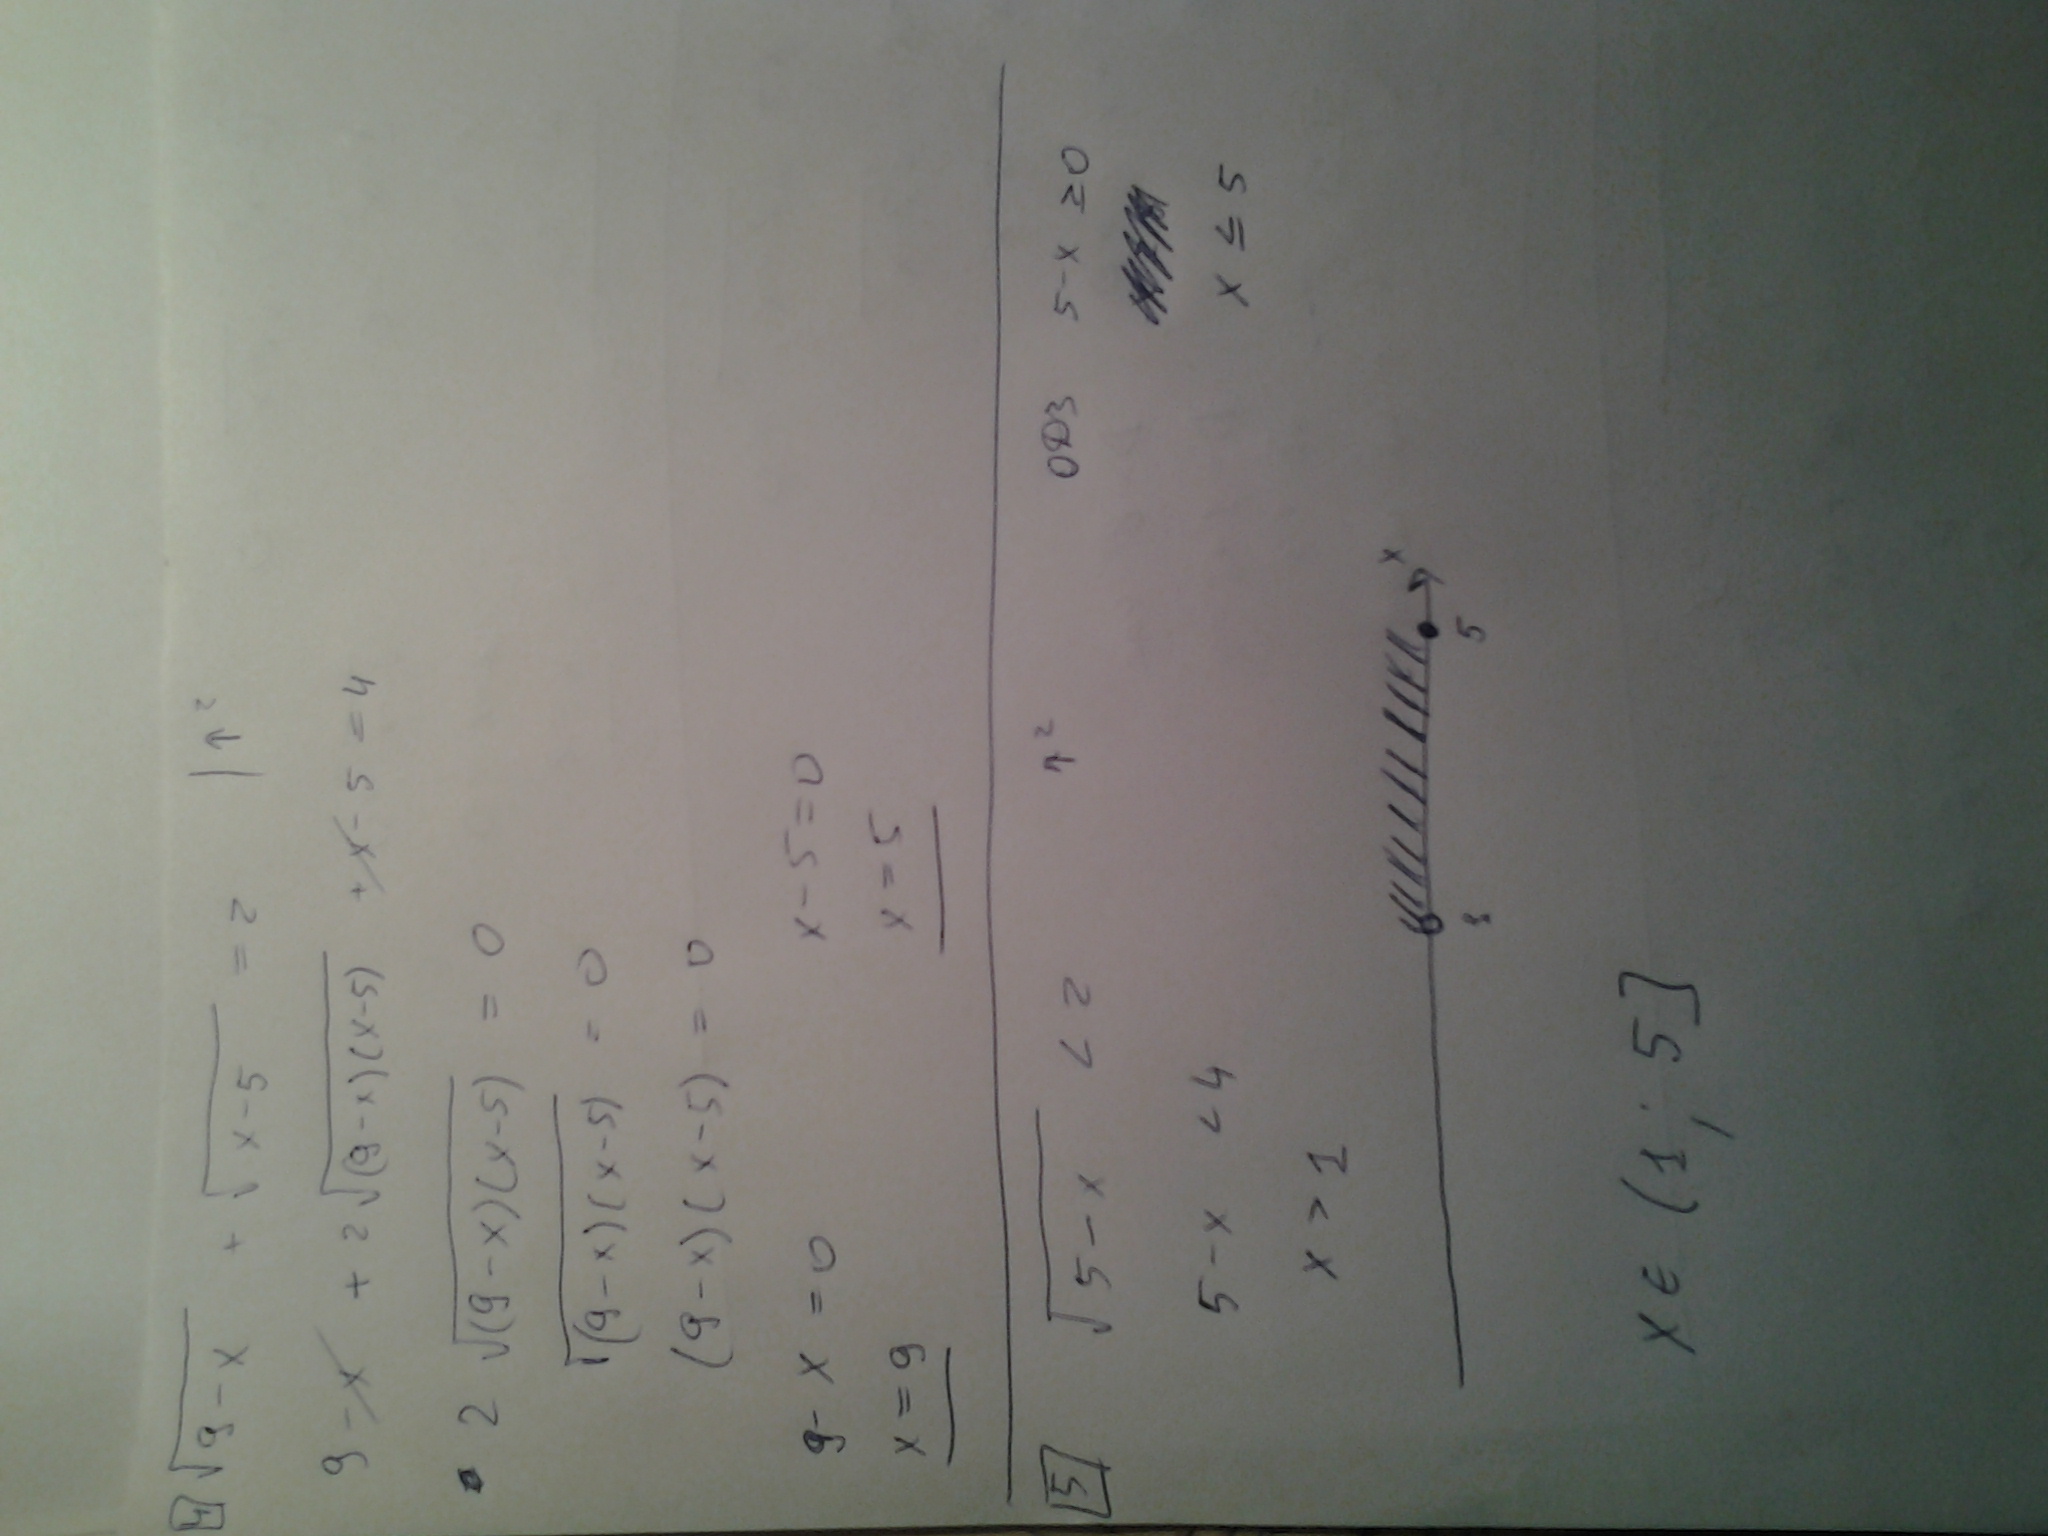 4 √(9-x) + √(x-5) = 2 | ↑²
9-x + 2√(9-x)(x-5) +x-5 = 4
2 √(9-x)(x-5) = 0
√(9-x)(x-5) = 0
(9-x)(x-5) = 0
9-x = 0 x-5=0
x=9 x=5
5 √5-x < 2 ↑² ОДЗ 5-x ≥0
5-x <4 x ≤ 5
x > 1
x
1 5
x ∈ (1; 5]